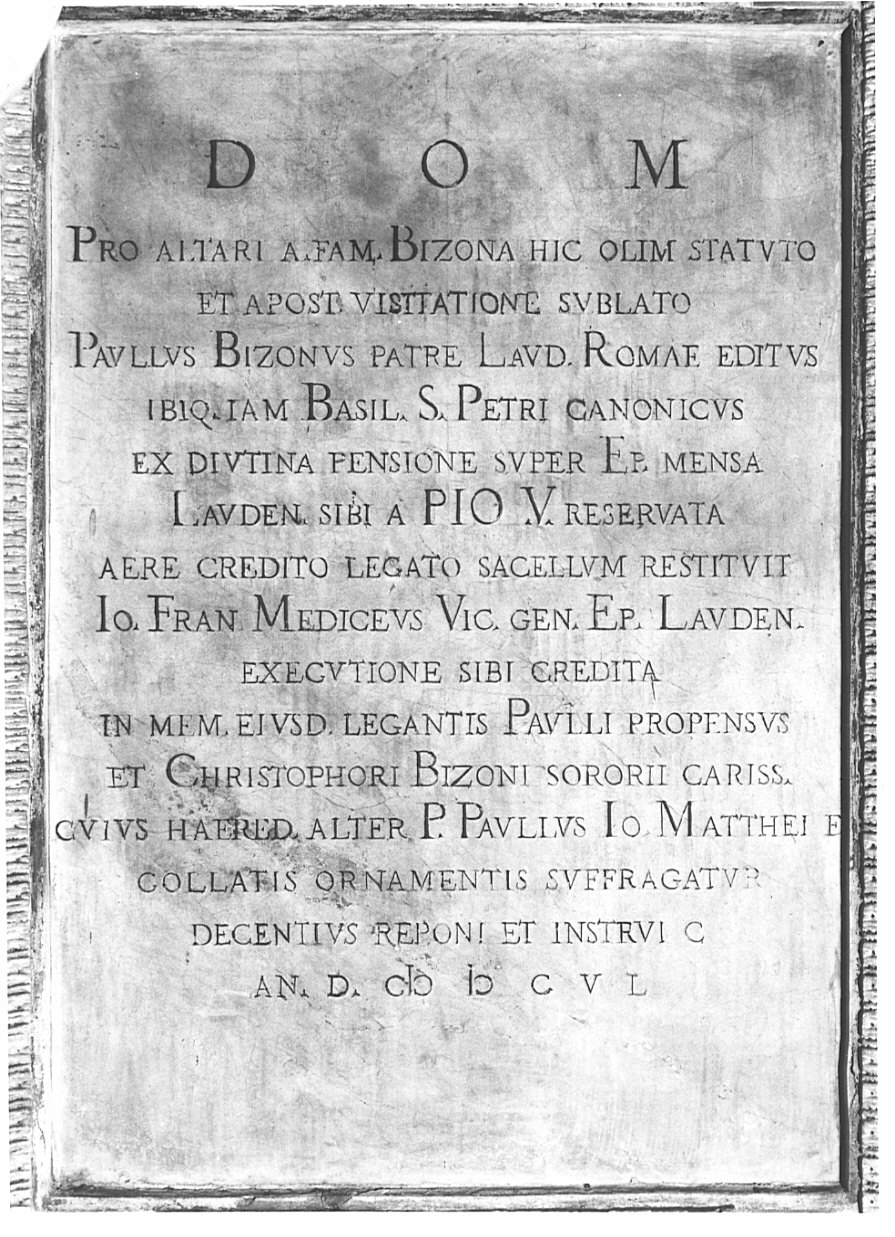 D O M
PRO ALTARI A FAM. BIZONA HIC OLIM STATVTO
ET APOST. VISITATIONE SVBLATO
PAVLLVS BIZONVS PATRE LAVD. ROMAE EDITVS
IBIQ. IAM BASIL. S. PETRI CANONICVS
EX DIVTINA PENSIONE SVPER EP. MENSA
LAVDEN. SIBI A PIO V. RESERVATA
AERE CREDITO LEGATO SACELLVM RESTITVIT
IO. FRAN. MEDICEVS VIC. GEN. EP. LAVDEN.
EXECVTIONE SIBI CREDITA
IN MEM. EIVSD. LEGANTIS PAVLLI PROPENSVS
ET CHRISTOPHORI BIZONI SORORII CARISS.
CVIVS HAERED. ALTER P. PAVLLVS IO. MATTHEI F
COLLATIS ORNAMENTIS SVFFRAGATVR
DECENTIVS REPONI ET INSTRVI C
AN. D. CIↃ IↃ C V L